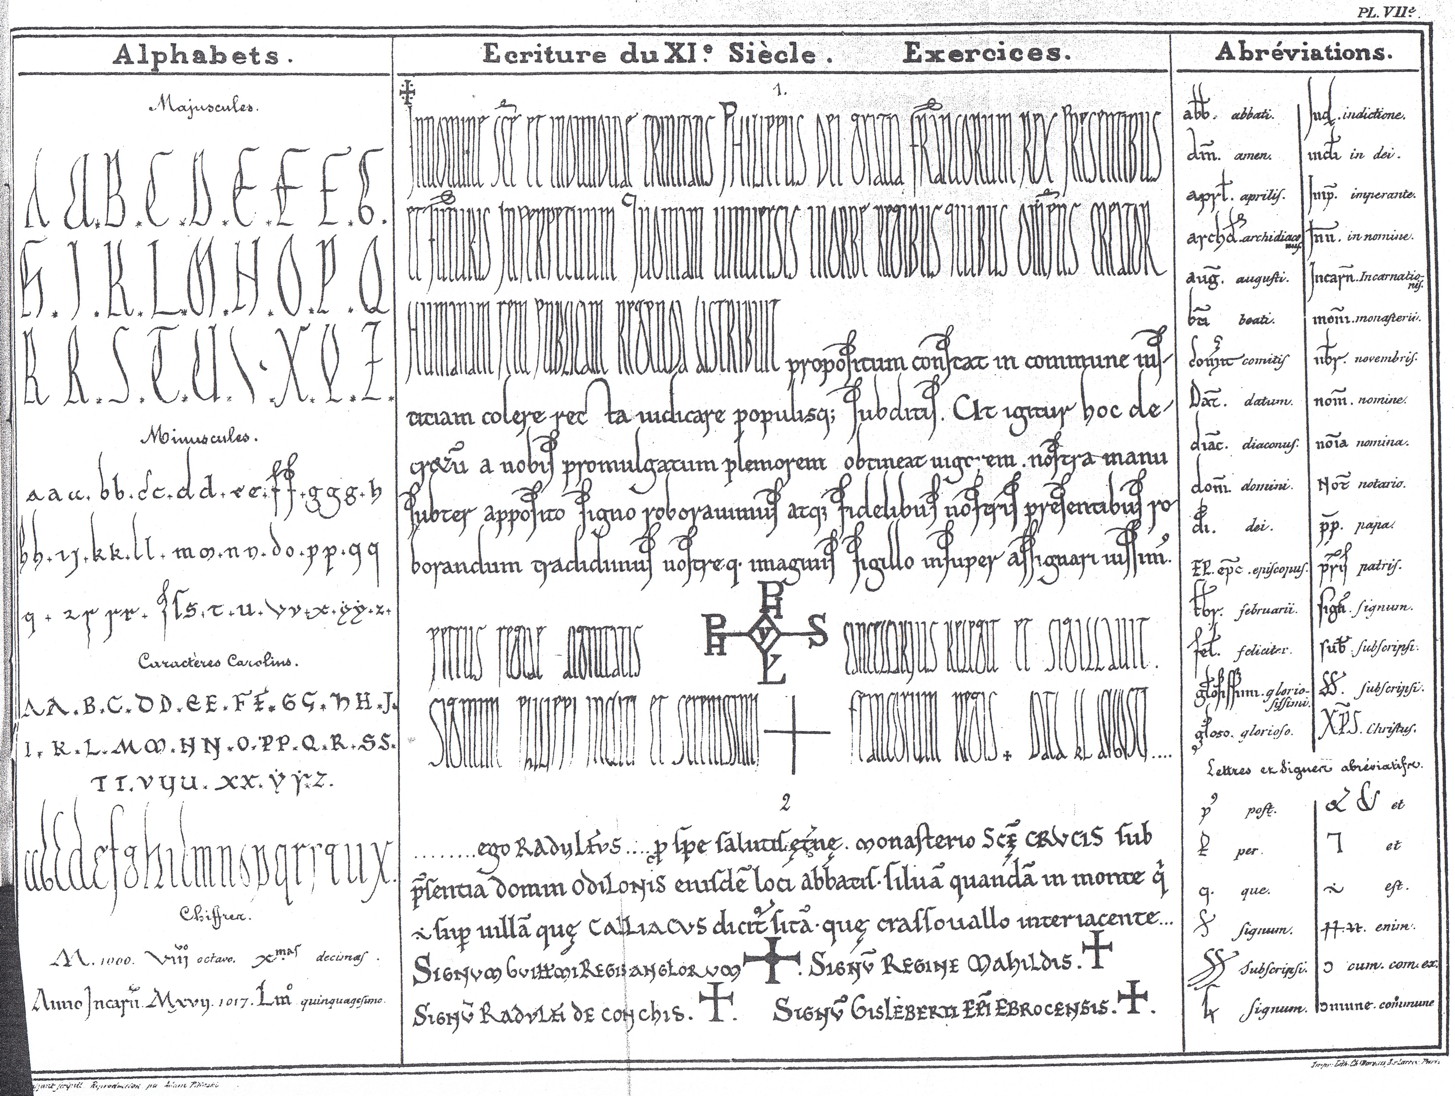 PL. VIIe.
Alphabets.
Majuscules.
A A.B.C.D.E.E E.G.
H.I.K.L.M.H.O.P.Q
R R.S.T.U V.X.Y.Z.
Minuscules.
a a a. bb. cc. d d. e e. f f. g g g. h
h h. i j. k k. l l. m m. n n. d o. p p. q q
q. r r r r. ſ ſ s. t. u. v v. x. y y. z.
Caractères Carolins.
A A. B. C. D D. E E. F F. G G. H H. J.
I. K. L. M M. N N. O. P P. Q. R. S S.
T T. V V U. X X. Y Y. Z.
a b d d e f g h i l m n s p q r r q u x.
Chiffres.
M. 1000. VIIIvo octavo. Xmas decimas.
Anno Incarn̄. Mxvij. 1017. Lmo quinquagesimo.
Ecriture du XIe. Siècle. Exercices.
1.
Innomine Scē et individue trinitatis Philippus Dei gratia francorum rex Presentibus
et futuris Inperpetuum Quoniam universis inorbe regibus quibus om̄ps creator
humanam rem publicam regendā distribuit propositum constat in commune iuſ-
titiam colere rec ta iudicare populisq; subditiſ. At igitur hoc de-
a nobiſ promulgatum pleniorem obtineat uigorem. noſtra manu
ſubter appoſito ſigno roborauimuſ atq; fidelibuſ noſtriſ preſentibuſ ro-
borandum tradidimuſ noſtreq. imaginiſ ſigillo inſuper aſſignari iuſſim9.
petrus regie dignitatis
PH PH V S L
cancellarius relegit et sigillavit.
Signum philippi incliti et serenissimi
francorum regis. Data kl augusti....
2
........ego RADULFUS....p̱ ſpe ſalutiſ ęt̄nę. monaſterio Scę CRUCIS ſub
p̄ſentia domni ODILONIS eiuſdē loci abbatiſ. ſiluā quandā in monte q̄
ē ſup uillā quę CALLIACVS dicit ſitā. quę craſſouallo interiacente...
SIGNUM GUILLMI REGIS ANGLORUM. SIGNŪ REGINE MAHILDIS.
SIGNŪ RADULFI DE CONCHIS. SIGNŪ GISLEBERTI EPI EBROCENSIS.
Abréviations.
abb. abbati.
am̄. amen.
apr̄l. aprilis.
archd̄. archidiaconus.
aug̃. augusti.
bt̄i beati.
comit comitis
Dat̄. datum.
diac̄. diaconus.
dom̄. domini.
di. dei.
EP. ep̄c. episcopus.
fbr. februarii.
fel. feliciter.
gloſiſſim. gloriosissimi.
gloso. glorioso.
Ind. indictione.
indi in dei.
Inp̄. imperante.
Inn̄. in nomine.
Incarn̄. Incarnationis.
mon̄i. monasterii.
nbr. novembris.
nom̄. nomine.
nōia nomina.
Not̄ notario.
pp̄. papa.
pr̄iſ patris.
ſign̄. signum.
ſub̄ subscripsi.
SS. subscripsi.
XP̄S. Christus.
Lettres et Signes abréviatifs.
p9 post.
per.
q. que.
signum.
Subscripsi.
Signum.
& et
7 et
est.
enim.
ɔ cum. com. ex.
ɔmune. commune